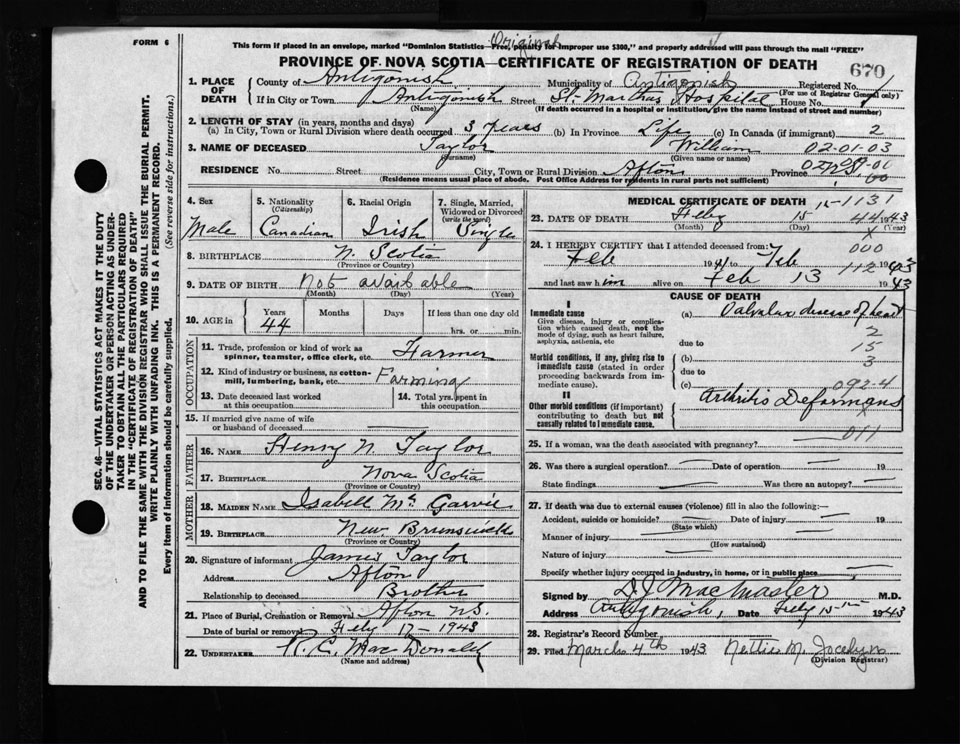 Original
FORM 6
This form if placed in an envelope, marked "Dominion Statistics—Free, penalty for improper use $300," and properly addressed will pass through the mail "FREE"
PROVINCE OF NOVA SCOTIA—CERTIFICATE OF REGISTRATION OF DEATH
670
1. PLACE OF DEATH County of Antigonish Municipality of Antigonish Registered No. 1
(For use of Registrar General only)
If in City or Town Antigonish Street St. Marthas Hospital House No.
(Name) (If death occurred in a hospital or institution, give the name instead of street and number)
2. LENGTH OF STAY (in years, months and days)
(a) In City, Town or Rural Division where death occurred 3 years (b) In Province Life (c) In Canada (if immigrant) 2
3. NAME OF DECEASED Taylor William 02-01-03
(Surname) (Given name or names)
RESIDENCE No. Street City, Town or Rural Division Afton Province
(Residence means usual place of abode. Post Office Address for residents in rural parts not sufficient)
SEC. 46—VITAL STATISTICS ACT MAKES IT THE DUTY
OF THE UNDERTAKER OR PERSON ACTING AS UNDER-
TAKER TO OBTAIN ALL THE PARTICULARS REQUIRED
IN THE "CERTIFICATE OF REGISTRATION OF DEATH"
AND TO FILE THE SAME WITH THE DIVISION REGISTRAR WHO SHALL ISSUE THE BURIAL PERMIT.
WRITE PLAINLY WITH UNFADING INK. THIS IS A PERMANENT RECORD.
Every item of information should be carefully supplied. (See reverse side for instructions.)
4. Sex 5. Nationality (Citizenship) 6. Racial Origin 7. Single, Married, Widowed or Divorced (write the word)
Male Canadian Irish Single
8. BIRTHPLACE N. Scotia
(Province or Country)
9. DATE OF BIRTH Not available
(Month) (Day) (Year)
10. AGE in Years Months Days If less than one day old
44 hrs. or min.
OCCUPATION
11. Trade, profession or kind of work as spinner, teamster, office clerk, etc. Farmer
12. Kind of industry or business, as cotton-mill, lumbering, bank, etc. Farming
13. Date deceased last worked at this occupation 14. Total yrs. spent in this occupation
15. If married give name of wife or husband of deceased
FATHER
16. NAME Henry N. Taylor
17. BIRTHPLACE Nova Scotia
(Province or Country)
MOTHER
18. MAIDEN NAME Isabell
19. BIRTHPLACE New Brunswick
(Province or Country)
20. Signature of informant James Taylor
Address Afton
Relationship to deceased Brother
21. Place of Burial, Cremation or Removal Afton N.S.
Date of burial or removal Feby 17 - 1943
22. UNDERTAKER MacDonald
(Name and address)
MEDICAL CERTIFICATE OF DEATH 15-1131
23. DATE OF DEATH Feby 15 1943
(Month) (Day) (Year)
24. I HEREBY CERTIFY that I attended deceased from:
Feb 1941 to Feb 1943
and last saw him alive on Feb 13 1943
CAUSE OF DEATH
I
Immediate cause
Give disease, injury or complication which caused death, not the mode of dying, such as heart failure, asphyxia, asthenia, etc
(a) Valvular disease of heart
2
due to 15
Morbid conditions, if any, giving rise to immediate cause (stated in order proceeding backwards from immediate cause).
(b) 3
due to
(c) 092-4
II
Other morbid conditions (if important) contributing to death but not causally related to immediate cause.
Arthritis Deformans
011
25. If a woman, was the death associated with pregnancy?
26. Was there a surgical operation? Date of operation 19
State findings Was there an autopsy?
27. If death was due to external causes (violence) fill in also the following:—
Accident, suicide or homicide? Date of injury 19
(State which)
Manner of injury
(How sustained)
Nature of injury
Specify whether injury occurred in industry, in home, or in public place
Signed by D. J. MacMaster M.D.
Address Antigonish, Date Feby 15th 1943
28. Registrar's Record Number
29. Filed March 4th 1943 Nettie M. Jocelyn
(Division Registrar)